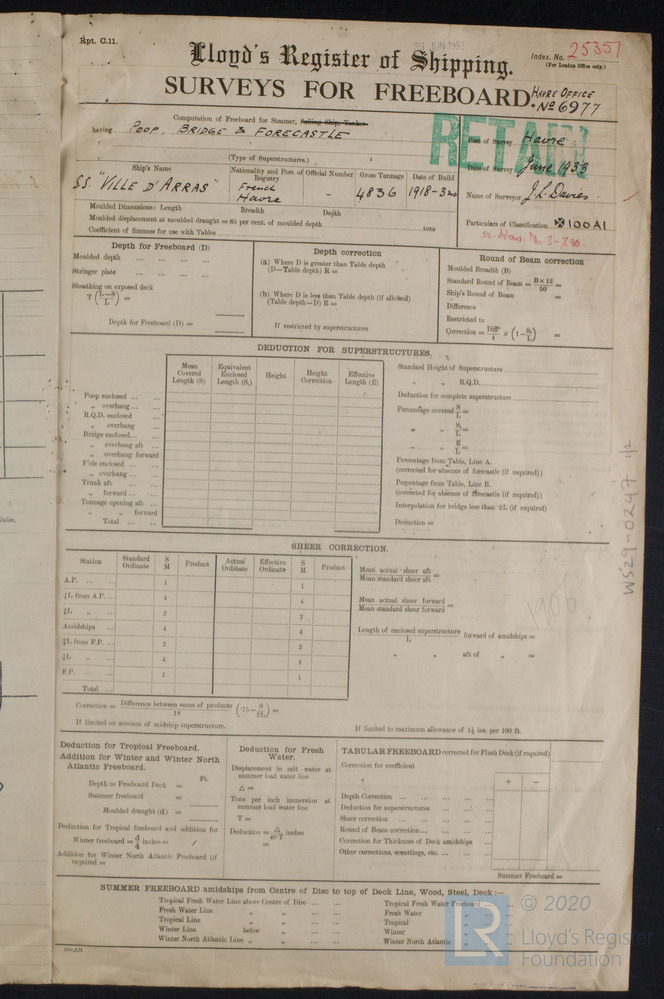 Rpt. C.11.
26 JUN 1933
Index. No. 25351
(For London Office only.)
Lloyd's Register of Shipping.
SURVEYS FOR FREEBOARD.
HAVRE OFFICE
No 6977
Computation of Freeboard for Steamer, Sailing Ship, Tanker
having POOP, BRIDGE & FORECASTLE
(Type of Superstructures.)
RETAIN
Port of Survey Havre
Date of Survey June 1933
Name of Surveyor J. L. Davies
Particulars of Classification ✠ 100 A1
Ship's Name
Nationality and Port of Registry
Official Number
Gross Tonnage
Date of Build
S.S. "VILLE D'ARRAS"
French
Havre
-
4836
1918-3 mo
Moulded Dimensions: Length Breadth Depth
Moulded displacement at moulded draught = 85 per cent. of moulded depth tons
Coefficient of fineness for use with Tables
Depth for Freeboard (D)
Moulded depth
Stringer plate
Sheathing on exposed deck
T (L-S / L) =
Depth for Freeboard (D) =
Depth correction
(a) Where D is greater than Table depth
(D—Table depth) R =
(b) Where D is less than Table depth (if allowed)
(Table depth—D) R =
If restricted by superstructures
Round of Beam correction
Moulded Breadth (B)
Standard Round of Beam = B × 12 / 50 =
Ship's Round of Beam =
Difference
Restricted to
Correction = Diffce / 4 × (1 - S₁ / L) =
DEDUCTION FOR SUPERSTRUCTURES.
Mean Covered Length (S)
Equivalent Enclosed Length (S₁)
Height
Height Correction
Effective Length (E)
Poop enclosed
„ overhang
R.Q.D. enclosed
„ overhang
Bridge enclosed
„ overhang aft
„ overhang forward
F'cle enclosed
„ overhang
Trunk aft
„ forward
Tonnage opening aft
„ „ forward
Total
Standard Height of Superstructure
„ „ R.Q.D.
Deduction for complete superstructure
Percentage covered S / L =
„ „ S₁ / L =
„ „ E / L =
Percentage from Table, Line A.
(corrected for absence of forecastle (if required))
Percentage from Table, Line B.
(corrected for absence of forecastle (if required))
Interpolation for bridge less than ·2L (if required)
Deduction =
SHEER CORRECTION.
Station
Standard Ordinate
S M
Product
Actual Ordinate
Effective Ordinate
S M
Product
A.P. 1 1
⅙L from A.P. 4 4
⅓L „ 2 2
Amidships 4 4
⅓L from F.P. 2 2
⅙L „ 4 4
F.P. 1 1
Total
Mean actual sheer aft / Mean standard sheer aft =
Mean actual sheer forward / Mean standard sheer forward =
Length of enclosed superstructure / L forward of amidships =
„ „ aft of „ =
Correction = Difference between sums of products / 18 (·75 - S / 2L) =
If limited on account of midship superstructure.
If limited to maximum allowance of 1½ ins. per 100 ft.
WS29-0247 1/2
Deduction for Tropical Freeboard.
Addition for Winter and Winter North Atlantic Freeboard.
Ft.
Depth to Freeboard Deck =
Summer freeboard =
Moulded draught (d) =
Deduction for Tropical freeboard and addition for
Winter freeboard = d / 4 inches =
Addition for Winter North Atlantic Freeboard (if required =
Deduction for Fresh Water.
Displacement in salt water at summer load water line
Δ =
Tons per inch immersion at summer load water line
T =
Deduction = Δ / 40 T inches
=
TABULAR FREEBOARD corrected for Flush Deck (if required)
Correction for coefficient
+ −
Depth Correction
Deduction for superstructures
Sheer correction
Round of Beam correction
Correction for Thickness of Deck amidships
Other corrections, scantlings, etc.
Summer Freeboard =
SUMMER FREEBOARD amidships from Centre of Disc to top of Deck Line, Wood, Steel, Deck :—
Tropical Fresh Water Line above Centre of Disc
Fresh Water Line „ „
Tropical Line „ „
Winter Line below „
Winter North Atlantic Line „ „
Tropical Fresh Water Freeboard
Fresh Water „
Tropical „
Winter „
Winter North Atlantic „
LR
© 2020
Lloyd's Register
Foundation